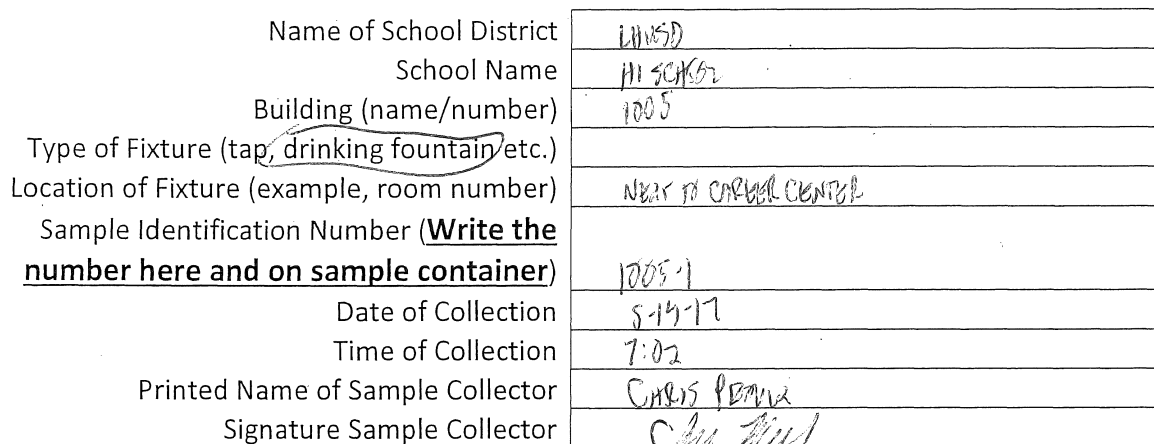 Name of School District LHUSD
School Name HI SCHOOL
Building (name/number) 1005
Type of Fixture (tap, drinking fountain etc.)
Location of Fixture (example, room number) NEXT TO CAREER CENTER
Sample Identification Number (Write the
number here and on sample container) 1005-1
Date of Collection
Time of Collection 7:02
Printed Name of Sample Collector CHRIS
Signature Sample Collector